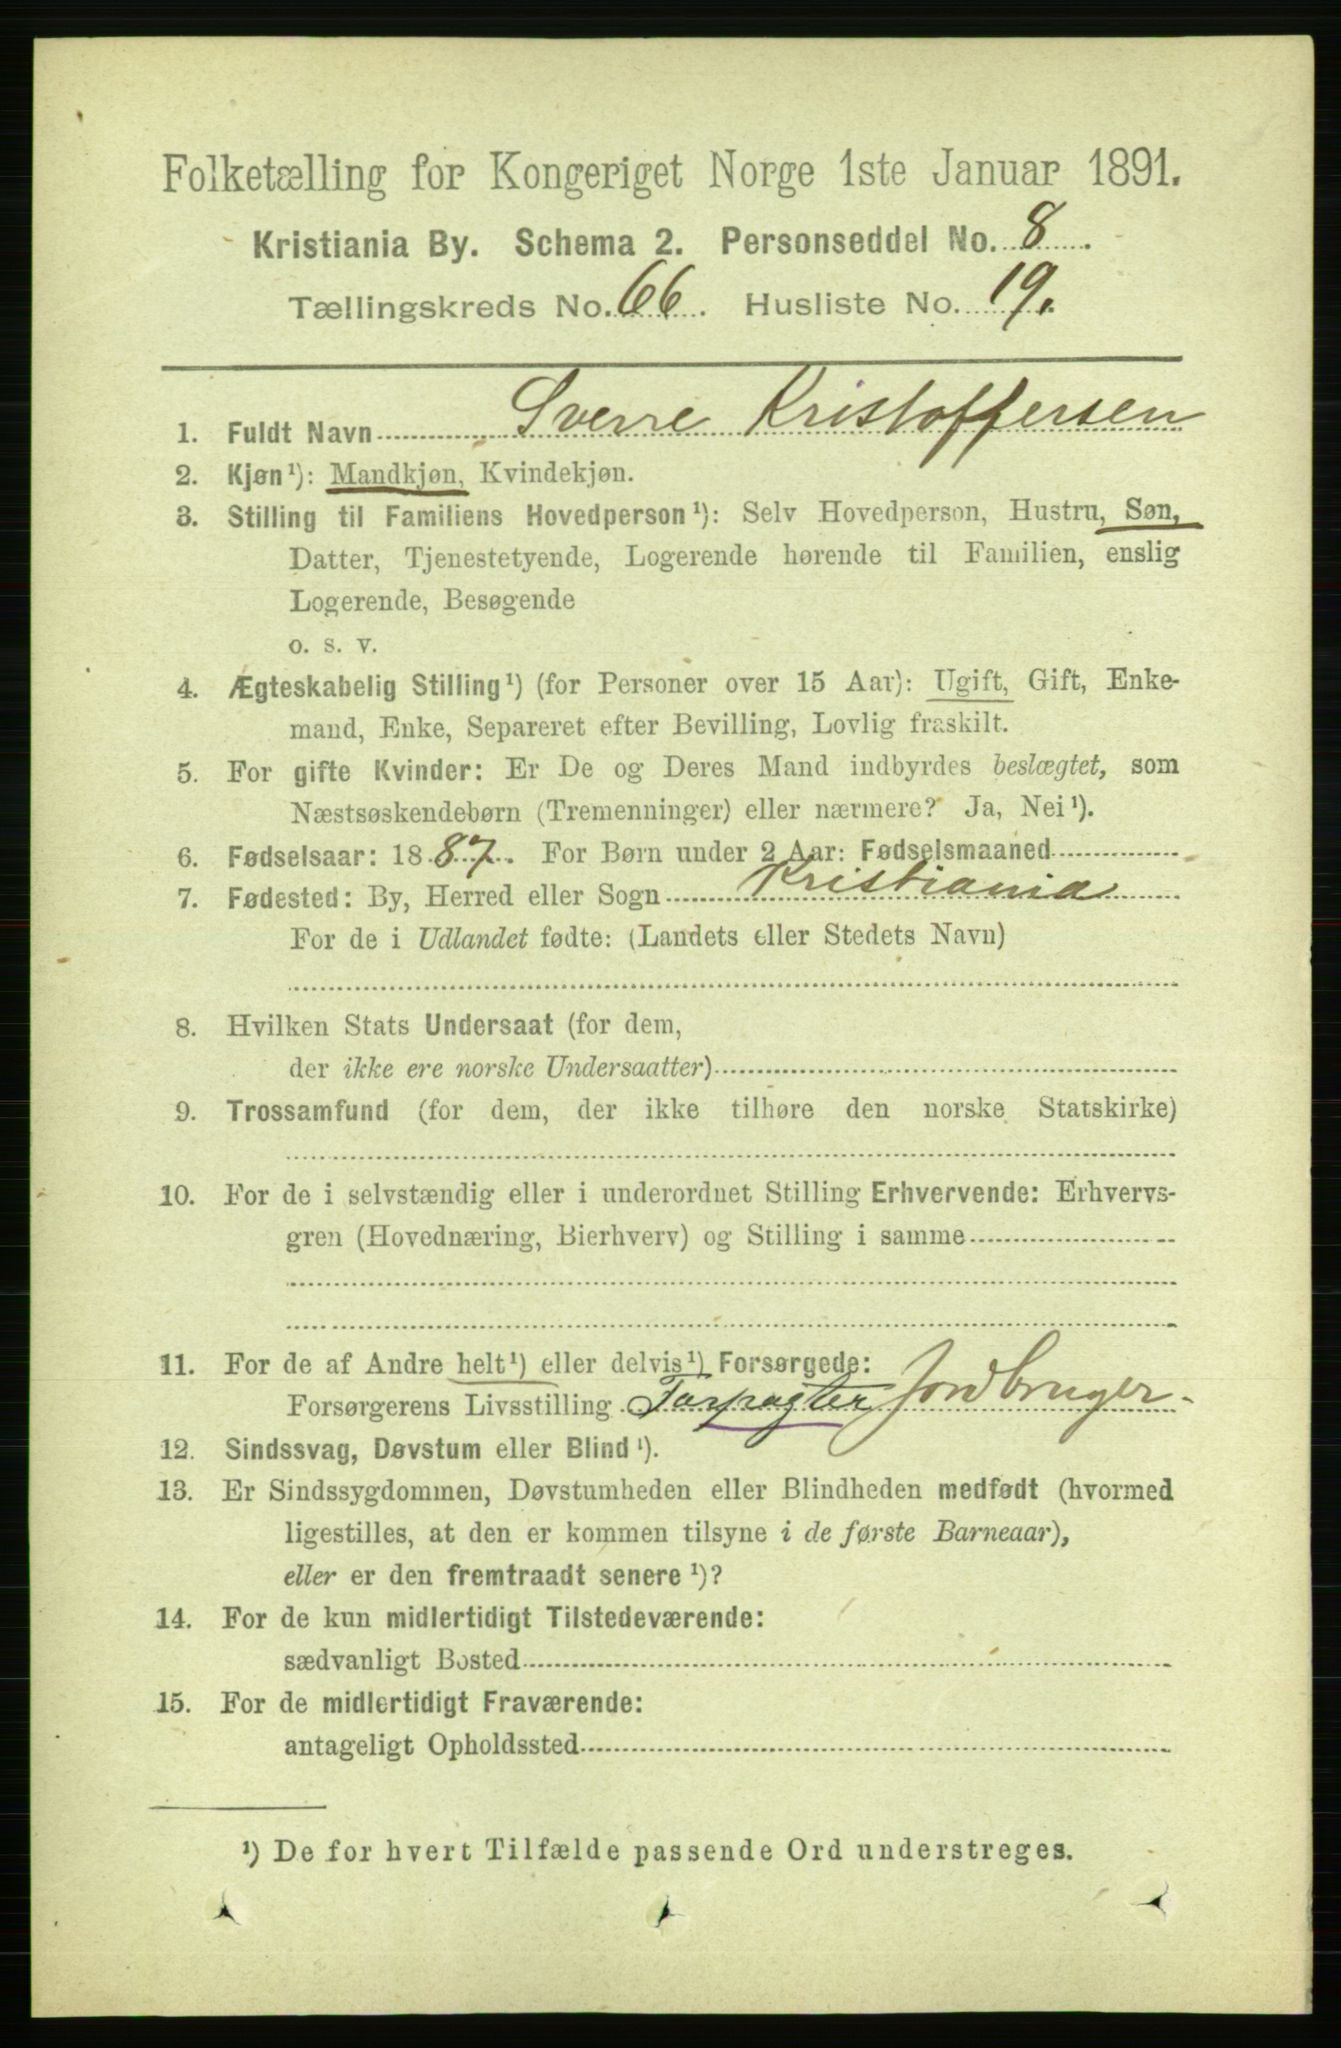 Folketælling for Kongeriget Norge 1ste Januar 1891.
Kristiania By. Schema 2. Personseddel No. 8.
Tællingskreds No. 66. Husliste No. 19.
1. Fuldt Navn Sverre Kristoffersen
2. Kjøn¹): Mandkjøn, Kvindekjøn.
3. Stilling til Familiens Hovedperson¹): Selv Hovedperson, Hustru, Søn,
Datter, Tjenestetyende, Logerende hørende til Familien, enslig
Logerende, Besøgende
o. s. v.
4. Ægteskabelig Stilling¹) (for Personer over 15 Aar): Ugift, Gift, Enke-
mand, Enke, Separeret efter Bevilling, Lovlig fraskilt.
5. For gifte Kvinder: Er De og Deres Mand indbyrdes beslægtet, som
Næstsøskendebørn (Tremenninger) eller nærmere? Ja, Nei¹).
6. Fødselsaar: 1887. For Børn under 2 Aar: Fødselsmaaned
7. Fødested: By, Herred eller Sogn Kristiania
For de i Udlandet fødte: (Landets eller Stedets Navn)
8. Hvilken Stats Undersaat (for dem,
der ikke ere norske Undersaatter)
9. Trossamfund (for dem, der ikke tilhøre den norske Statskirke)
10. For de i selvstændig eller i underordnet Stilling Erhvervende: Erhvervs-
gren (Hovednæring, Bierhverv) og Stilling i samme
11. For de af Andre helt¹) eller delvis¹) Forsørgede:
Forsørgerens Livsstilling Forpagter Jordbruger.
12. Sindssvag, Døvstum eller Blind¹).
13. Er Sindssygdommen, Døvstumheden eller Blindheden medfødt (hvormed
ligestilles, at den er kommen tilsyne i de første Barneaar),
eller er den fremtraadt senere¹)?
14. For de kun midlertidigt Tilstedeværende:
sædvanligt Bosted
15. For de midlertidigt Fraværende:
antageligt Opholdssted
¹) De for hvert Tilfælde passende Ord understreges.